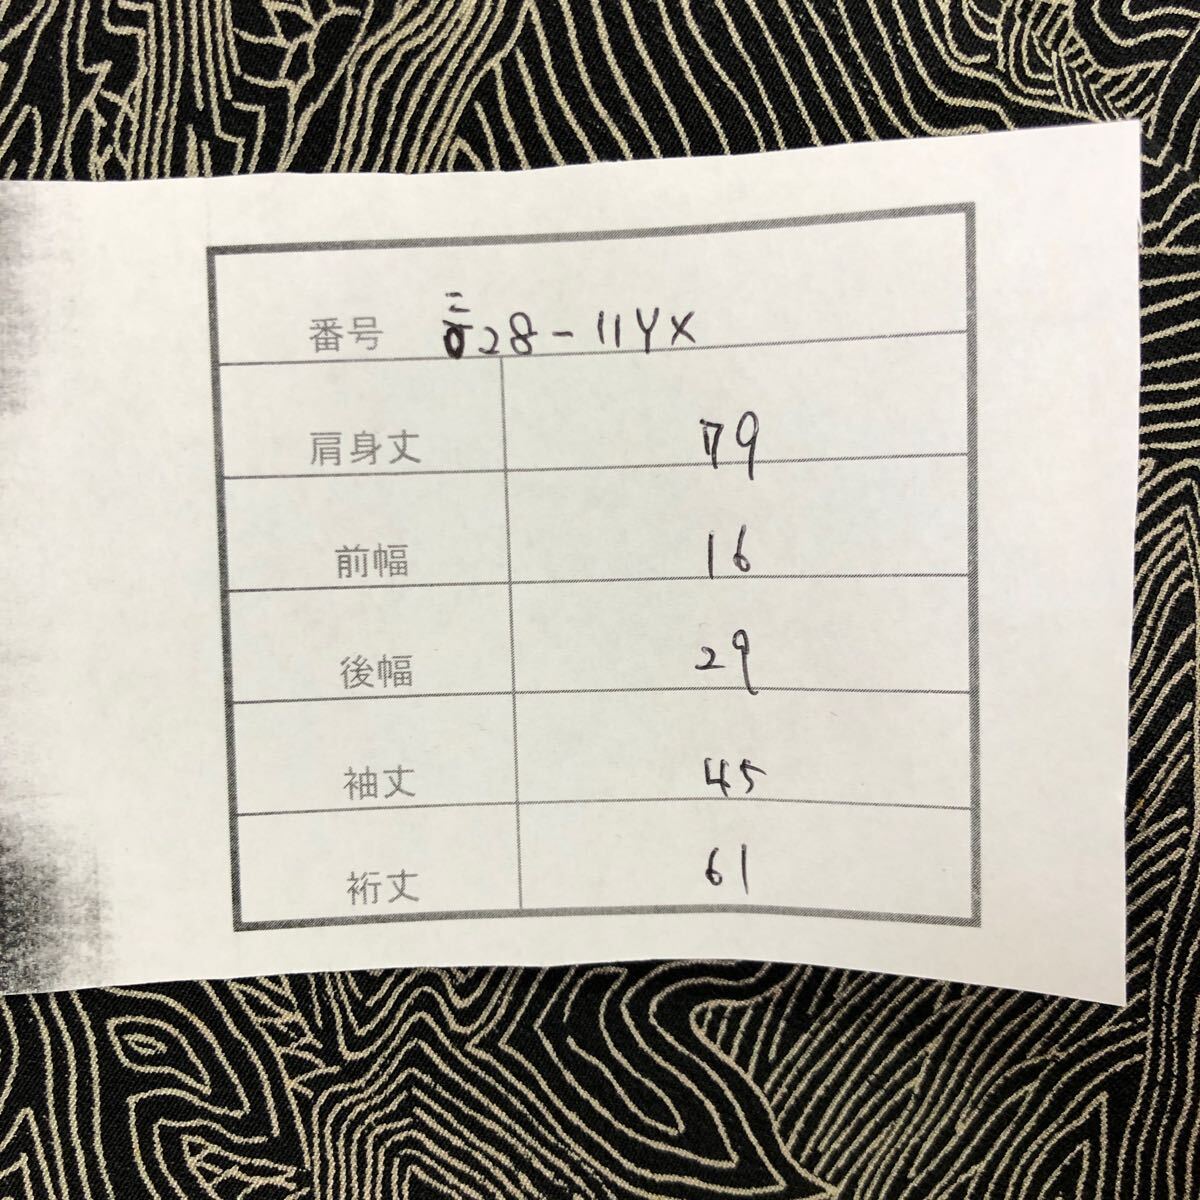 番号 28-11YX
肩身丈 79
前幅 16
後幅 29
袖丈 45
裄丈 61